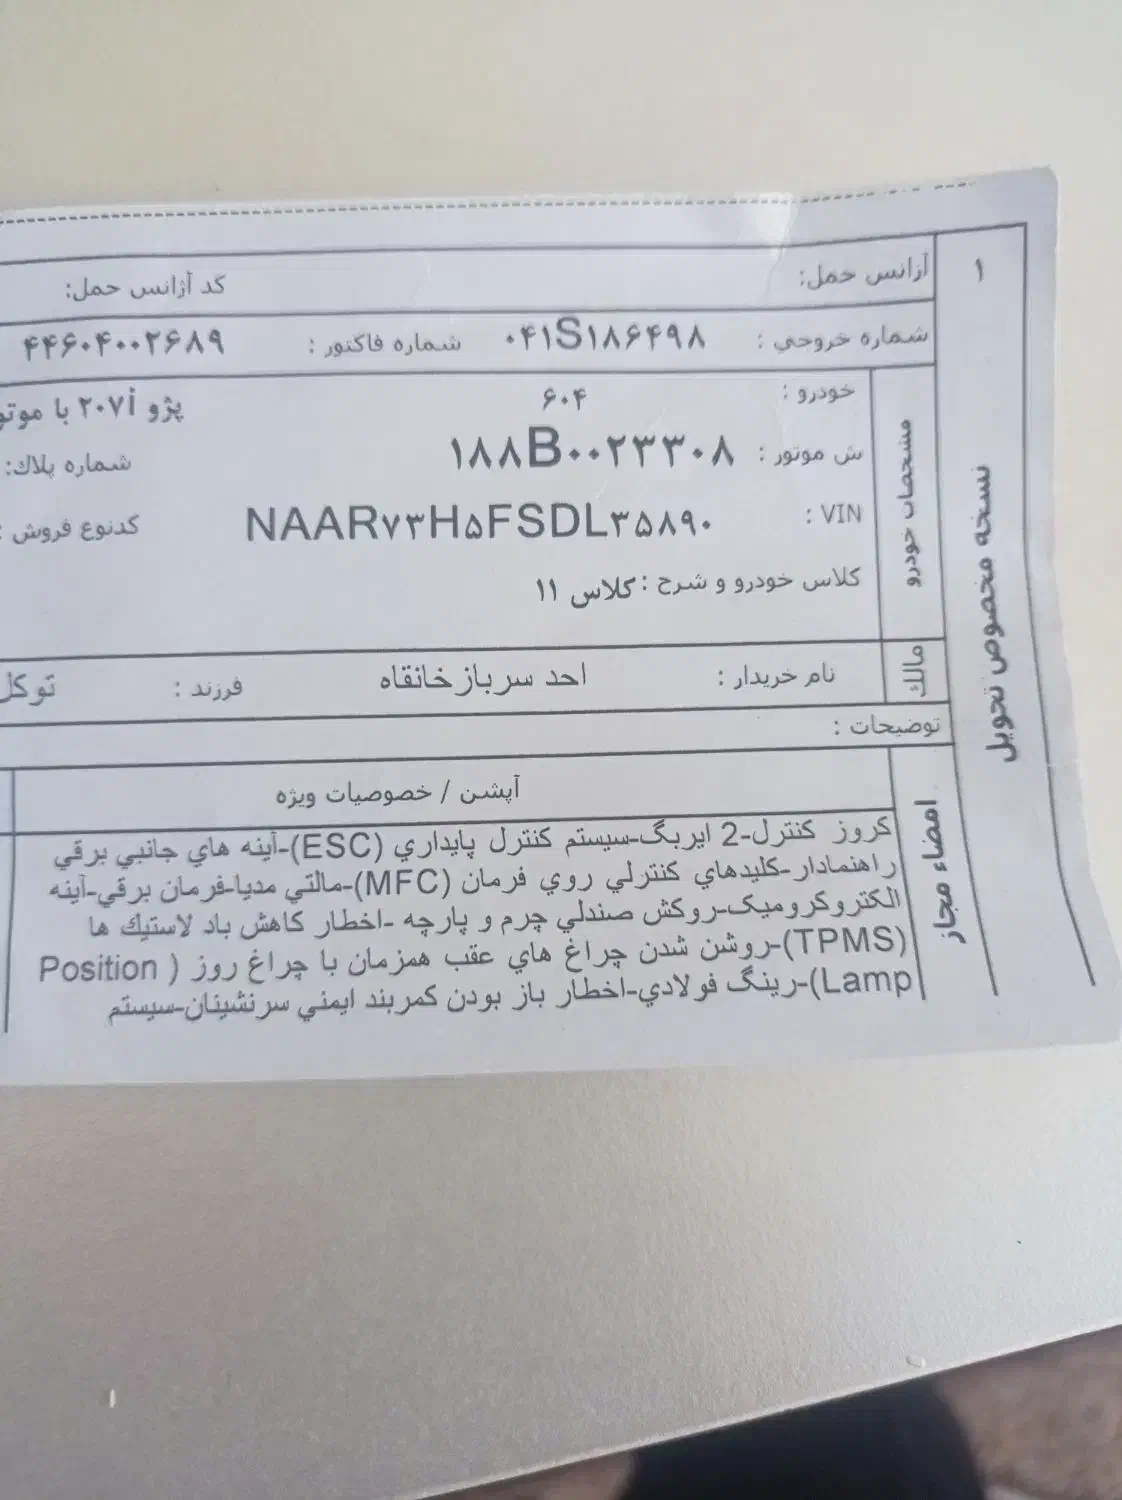 ۱
نسخه مخصوص تحویل
آژانس حمل: کد آژانس حمل:
شماره خروجي : ۰۴۱S۱۸۶۴۹۸ شماره فاکتور : ۴۴۶۰۴۰۰۲۶۸۹
مشخصات خودرو
خودرو : ۶۰۴ پژو ۲۰۷i با
ش موتور : ۱۸۸B۰۰۲۳۳۰۸ شماره پلاك:
VIN : NAAR۷۳H۵FSDL۳۵۸۹۰ کدنوع فروش :
کلاس خودرو و شرح : کلاس ۱۱
مالك
نام خریدار : احد سرباز خانقاه فرزند : توکل
توضیحات :
امضاء مجاز
آپشن / خصوصیات ویژه
کروز کنترل-2 ایربگ-سیستم کنترل پایداري (ESC)-آینه هاي جانبي برقي
راهنمادار-کلیدهاي کنترلي روي فرمان (MFC)-مالتي مدیا-فرمان برقي-آینه
الکتروکرومیک-روکش صندلي چرم و پارچه -اخطار کاهش باد لاستیك ها
(TPMS)-روشن شدن چراغ هاي عقب همزمان با چراغ روز ( Position
Lamp)-رینگ فولادي-اخطار باز بودن کمربند ایمني سرنشینان-سیستم